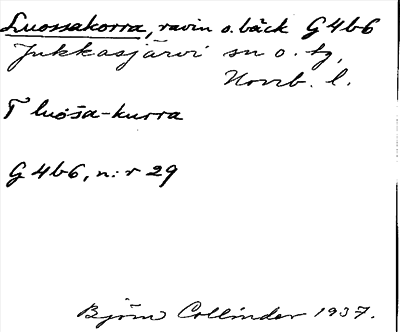 Luossakorra, ravin o. bäck G4b6
Jukkasjärvi sn o. tg,
Norrb. l.
T luossa-kurra
G 4b6, n:r 29
Björn Collinder 1937.